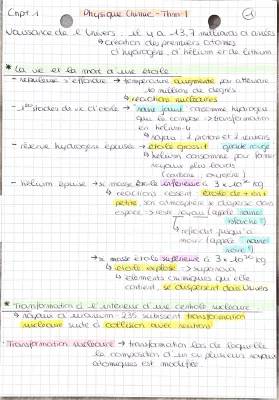 Chpt. 1 Physique Chimie - Thm 1
Naissance de l'Univers : il y a 13,7 milliards d'années
→ création des premiers atomes
d'hydrogène, d'hélium et de lithium
* La vie et la mort d'une étoile
- nébuleuse s'effondre → température augmente pour atteindre
10 millions de degrés
→ réactions nucléaires
- 1ères étoiles de vie d'étoile → naine jaune consomme hydrogène
qui la compose → transformation
en hélium-4
→ noyau : 2 protons et 2 neutrons
- réserve hydrogène épuisée → étoile grossit géante rouge
→ hélium consommé pour former
noyaux plus lourds
(carbone, oxygène)
- hélium épuisé → si masse étoile inférieure à 3 × 10³⁰ kg
→ réactions cessent, étoile de + en +
petite, son atmosphère se disperse dans
espace → son noyau (appelé naine
blanche)
→ refroidit jusqu'à
mourir (appelé naine
noire)
→ si masse étoile supérieure à 3 × 10³⁰ kg
→ étoile explose → supernova
→ éléments chimiques qu'elle
contient, se dispersent dans Univers
* Transformation à l'intérieur d'une centrale nucléaire
→ noyaux d'uranium-235 subissent transformation
nucléaire suite à collision avec neutron
- Transformation nucléaire → transformation lors de laquelle
la composition d'un ou plusieurs noyaux
atomiques est modifiée.